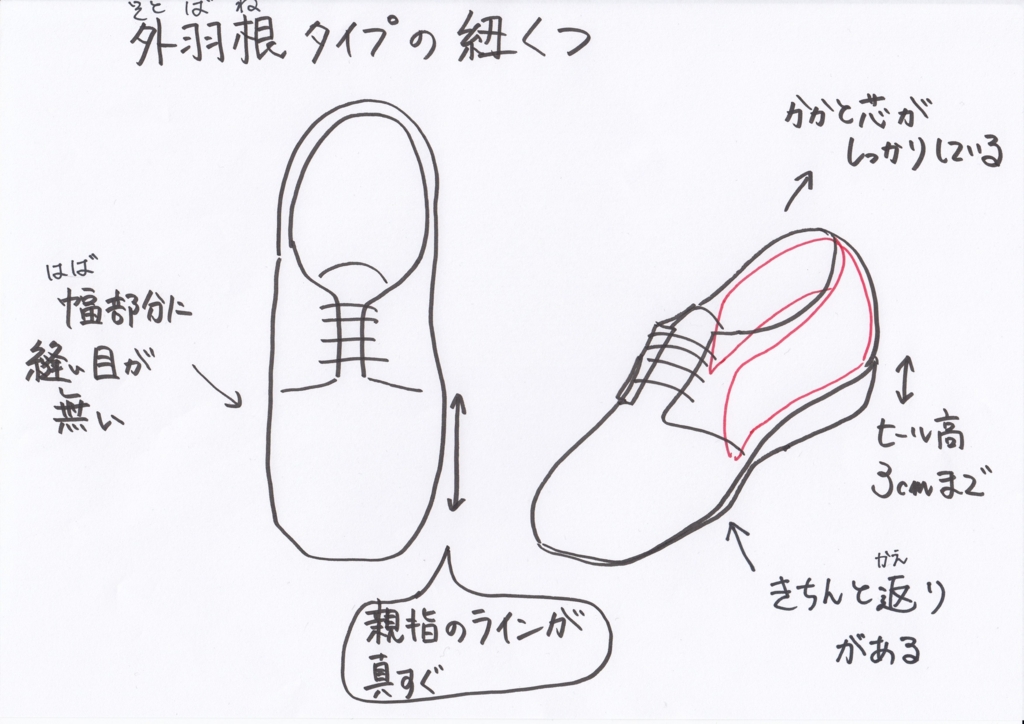 そとばね
外羽根タイプの紐くつ
かかと芯が
しっかりしている
はば
幅部分に
縫い目が
無い
ヒール高
3cmまで
かえ
きちんと返り
がある
親指のラインが
真すぐ